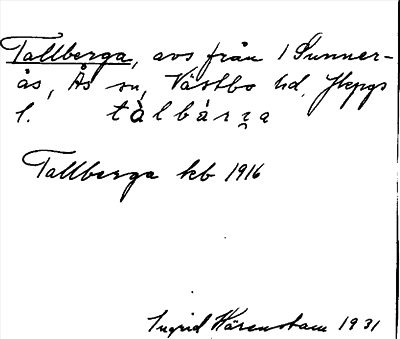 Tallberga, avs från 1 Sunner-
ås, Ås sn, Västbo hd, Jkpgs
l. tàlbárʒa
Tallberga kb 1916
Ingrid Härenstam 1931